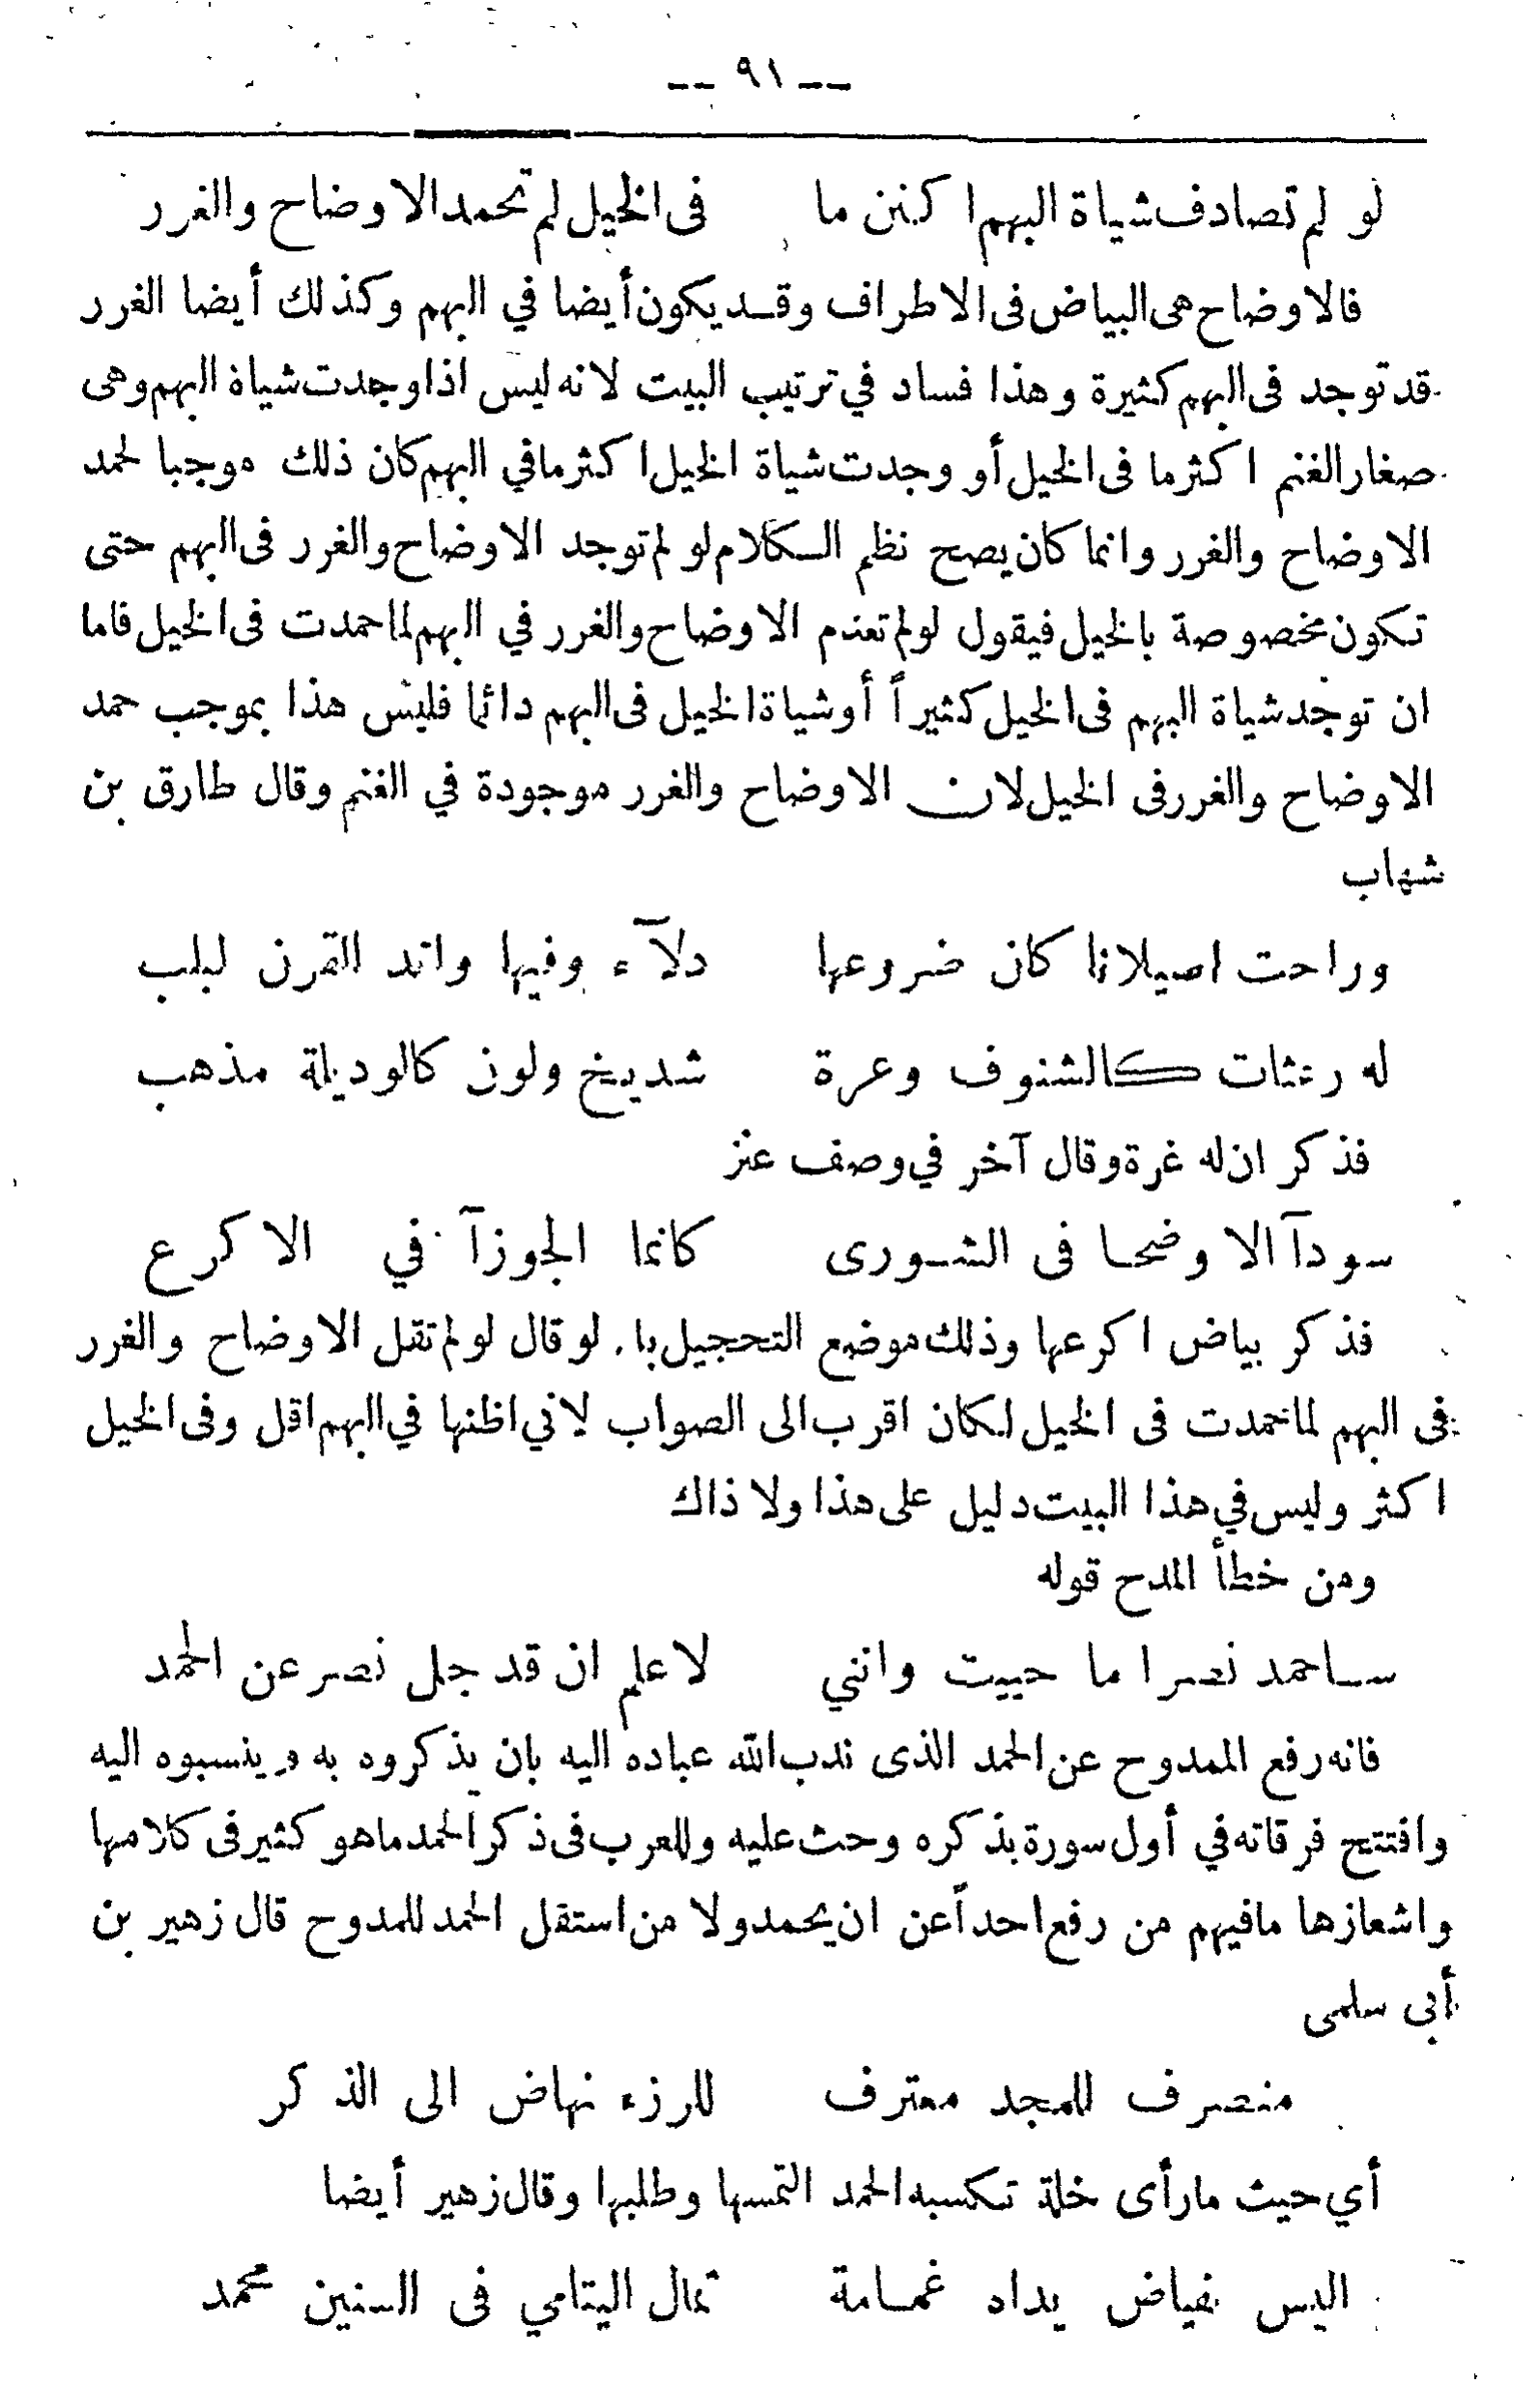 -- ٩١ --
لو لم تصادف شياة البهم اكنن ما في الخيل لم تحمد الاوضاح والغرر
فالاوضاح هي البياض في الاطراف وقد يكون أيضا في البهم وكذلك أيضا الغرر
قد توجد في البهم كثيرة وهذا فساد في ترتيب البيت لانه ليس اذا وجدت شياة البهم وهي
صغار الغنم اكثر ما في الخيل أو وجدت شياة الخيل اكثر مافي البهم كان ذلك موجبا لحمد
الاوضاح والغرر وانما كان يصح نظم الكلام لو لم توجد الاوضاح والغرر في البهم حتى
تكون مخصوصة بالخيل فيقول لو لم تعدم الاوضاح والغرر في البهم لما حمدت في الخيل فاما
ان توجد شياة البهم في الخيل كثيراً أو شياة الخيل في البهم دائما فليس هذا بموجب حمد
الاوضاح والغرر في الخيل لان الاوضاح والغرر موجودة في الغنم وقال طارق بن
شهاب
وراحت اصيلانا كان ضروعها دلآء وفيها واتد القرن لبلب
له رعثات كالشنوف وعرة شديخ ولون كالوذيلة مذهب
فذكر ان له غرة وقال آخر في وصف عنز
سودآ الا وضحا في الشورى كانما الجوزآ في الاكرع
فذكر بياض اكرعها وذلك موضع التحجيل لو قال لو لم تقل الاوضاح والغرر
في البهم لما حمدت في الخيل لكان اقرب الى الصواب لاني اظنها في البهم اقل وفي الخيل
اكثر وليس في هذا البيت دليل على هذا ولا ذاك
ومن خطأ المدح قوله
ساحمد نصرا ما حييت وانني لاعلم ان قد جل نصر عن الحمد
فانه رفع الممدوح عن الحمد الذى ندب الله عباده اليه بان يذكروه به وينسبوه اليه
وافتتح فرقانه في أول سورة بذكره وحث عليه وللعرب في ذكر الحمد ما هو كثير في كلامها
واشعارها مافيهم من رفع احداً عن ان يحمد ولا من استقل الحمد للمدوح قال زهير بن
أبي سلمى
منصرف للمجد معترف للرزء نهاض الى الذكر
أي حيث مارأى خلة تكسبه الحمد التمسها وطلبها وقال زهير أيضا
اليس بفياض يداه غمامة ثمال اليتامي في السنين محمد